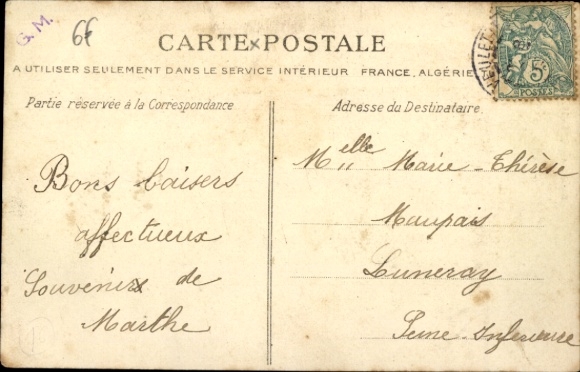 G. M.
66
CARTE POSTALE
A UTILISER SEULEMENT DANS LE SERVICE INTÉRIEUR FRANCE, ALGÉRIE
Partie réservée à la Correspondance
Adresse du Destinataire.
5c
POSTES
Bons baisers
affectueux
Souvenirs de
Marthe
Melle Marie-Thérèse
Maupais
Luneray
Seine Inferieure